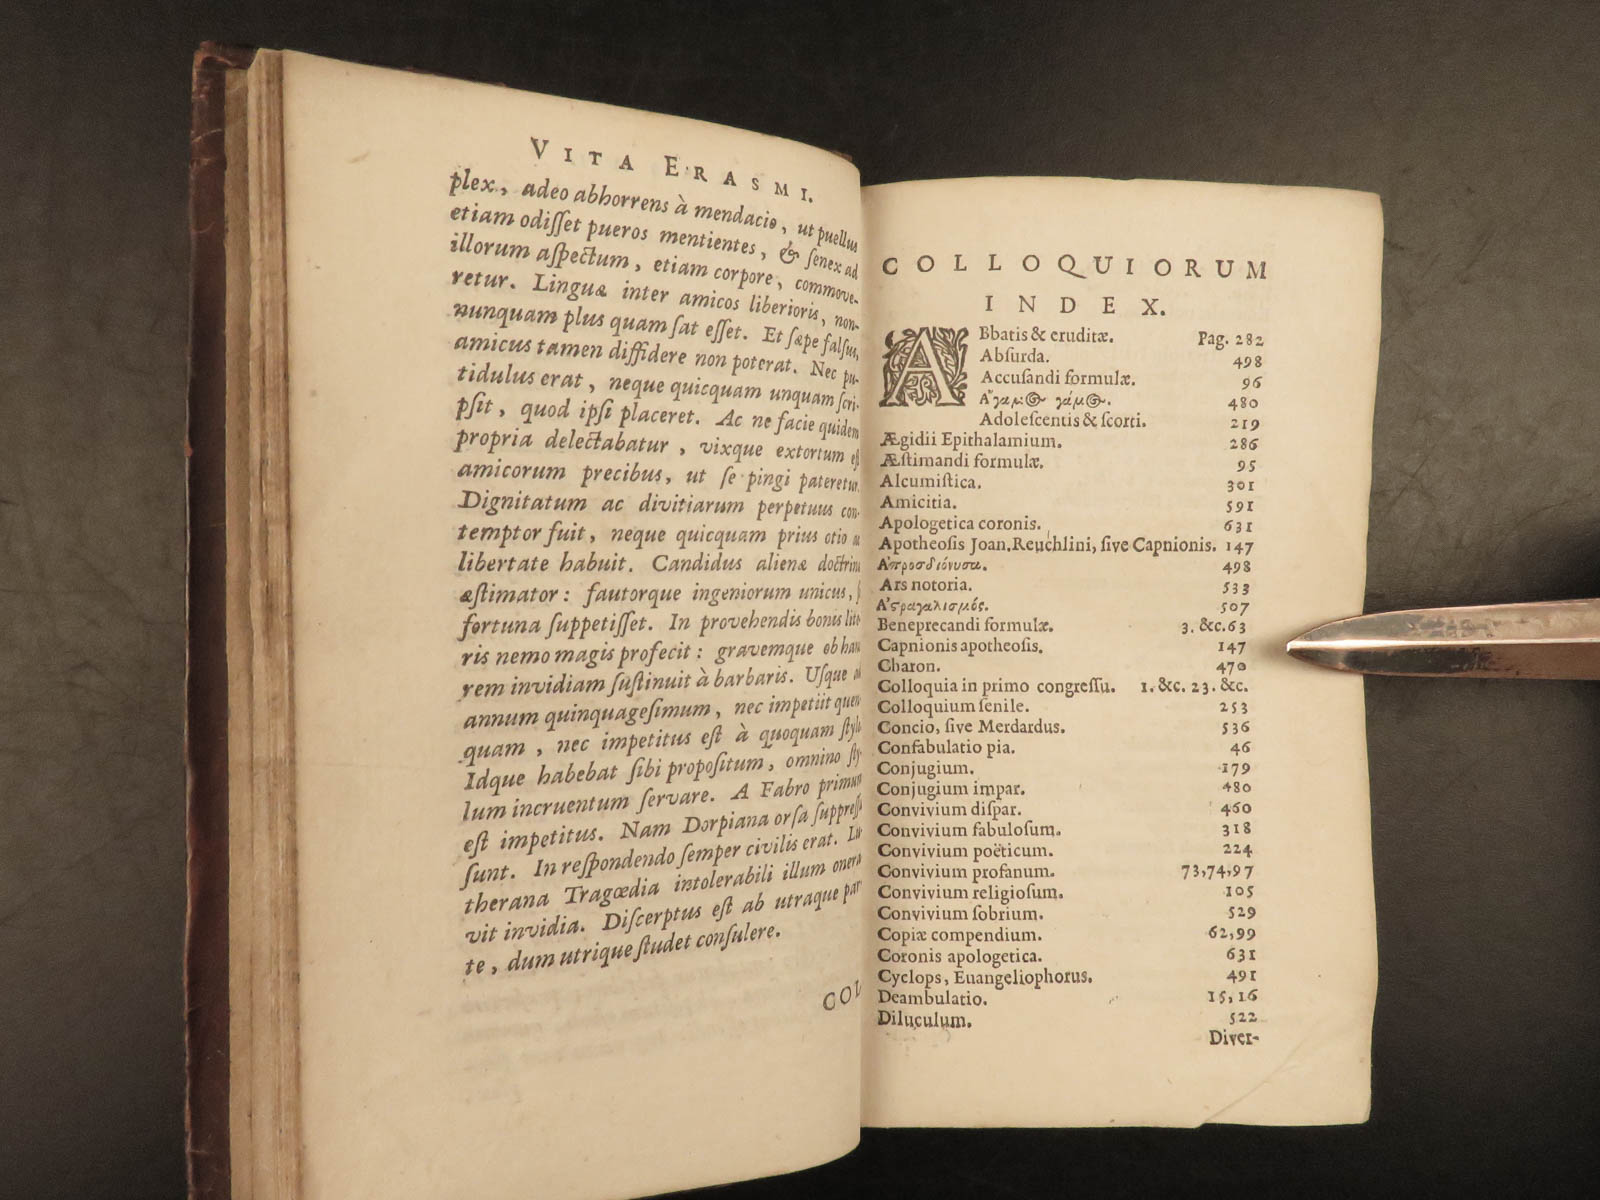 VITA ERASMI.
plex, adeo abhorrens à mendacio, ut puellus
etiam odiſſet pueros mentientes, & ſenex ad
illorum aſpectum, etiam corpore, commove-
retur. Linguæ inter amicos liberioris, non-
nunquam plus quam ſat eſſet. Et ſæpe falſus,
amicus tamen diffidere non poterat. Nec pu-
tidulus erat, neque quicquam unquam ſcri-
pſit, quod ipſi placeret. Ac ne facie quidem
propria delectabatur, vixque extortum eſt
amicorum precibus, ut ſe pingi pateretur.
Dignitatum ac divitiarum perpetuus con-
temptor fuit, neque quicquam prius otio ac
libertate habuit. Candidus alienæ doctrinæ
æſtimator: fautorque ingeniorum unicus,
fortuna ſuppetiſſet. In provehendis bonis lite-
ris nemo magis profecit: gravemque ob hanc
rem invidiam ſuſtinuit à barbaris. Uſque ad
annum quinquageſimum, nec impetiit quen-
quam, nec impetitus eſt à quoquam ſtylo.
Idque habebat ſibi propoſitum, omnino ſty-
lum incruentum ſervare. A Fabro primum
eſt impetitus. Nam Dorpiana orſa ſuppreſſa
ſunt. In reſpondendo ſemper civilis erat. Lu-
therana Tragœdia intolerabili illum onera-
vit invidia. Diſcerptus eſt ab utraque par-
te, dum utrique ſtudet conſulere.
COL
COLLOQUIORUM
INDEX.
ABbatis & eruditæ. Pag. 282
Abſurda. 498
Accuſandi formulæ. 96
Ἄγαμος γάμος. 480
Adoleſcentis & ſcorti. 219
Ægidii Epithalamium. 286
Æſtimandi formulæ. 95
Alcumiſtica. 301
Amicitia. 591
Apologetica coronis. 631
Apotheoſis Joan. Reuchlini, ſive Capnionis. 147
Ἀπροσδιόνυσα. 498
Ars notoria. 533
Ἀϛραγαλισμός. 507
Beneprecandi formulæ. 3. &c. 63
Capnionis apotheoſis. 147
Charon. 470
Colloquia in primo congreſſu. 1. &c. 23. &c.
Colloquium ſenile. 253
Concio, ſive Merdardus. 536
Confabulatio pia. 46
Conjugium. 179
Conjugium impar. 480
Convivium diſpar. 460
Convivium fabuloſum. 318
Convivium poëticum. 224
Convivium profanum. 73,74,97
Convivium religioſum. 105
Convivium ſobrium. 529
Copiæ compendium. 62,99
Coronis apologetica. 631
Cyclops, Euangeliophorus. 491
Deambulatio. 15, 16
Diluculum. 522
Diver-